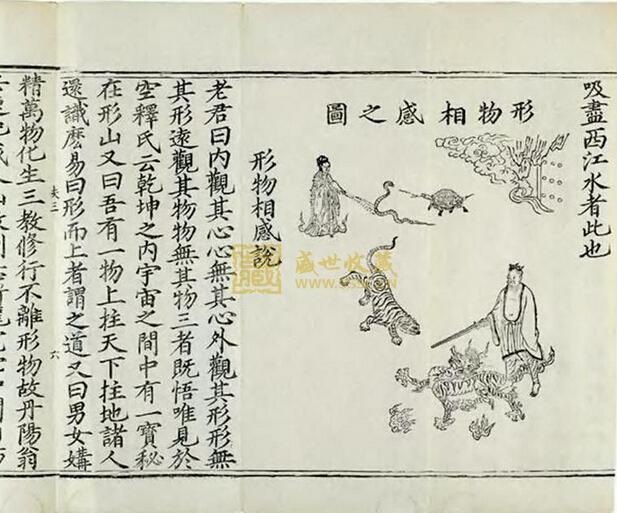 吸盡西江水者此也
形物相感之圖
形物相感說
老君曰內觀其心心無其心外觀其形形無
其形遠觀其物物無其物三者既悟唯見於
空釋氏云乾坤之內宇宙之間中有一寶秘
在形山又曰吾有一物上拄天下拄地諸人
還識麽易曰形而上者謂之道又曰男女媾
夫三
六
精萬物化生三教修行不離形物故丹陽翁
盛世收藏